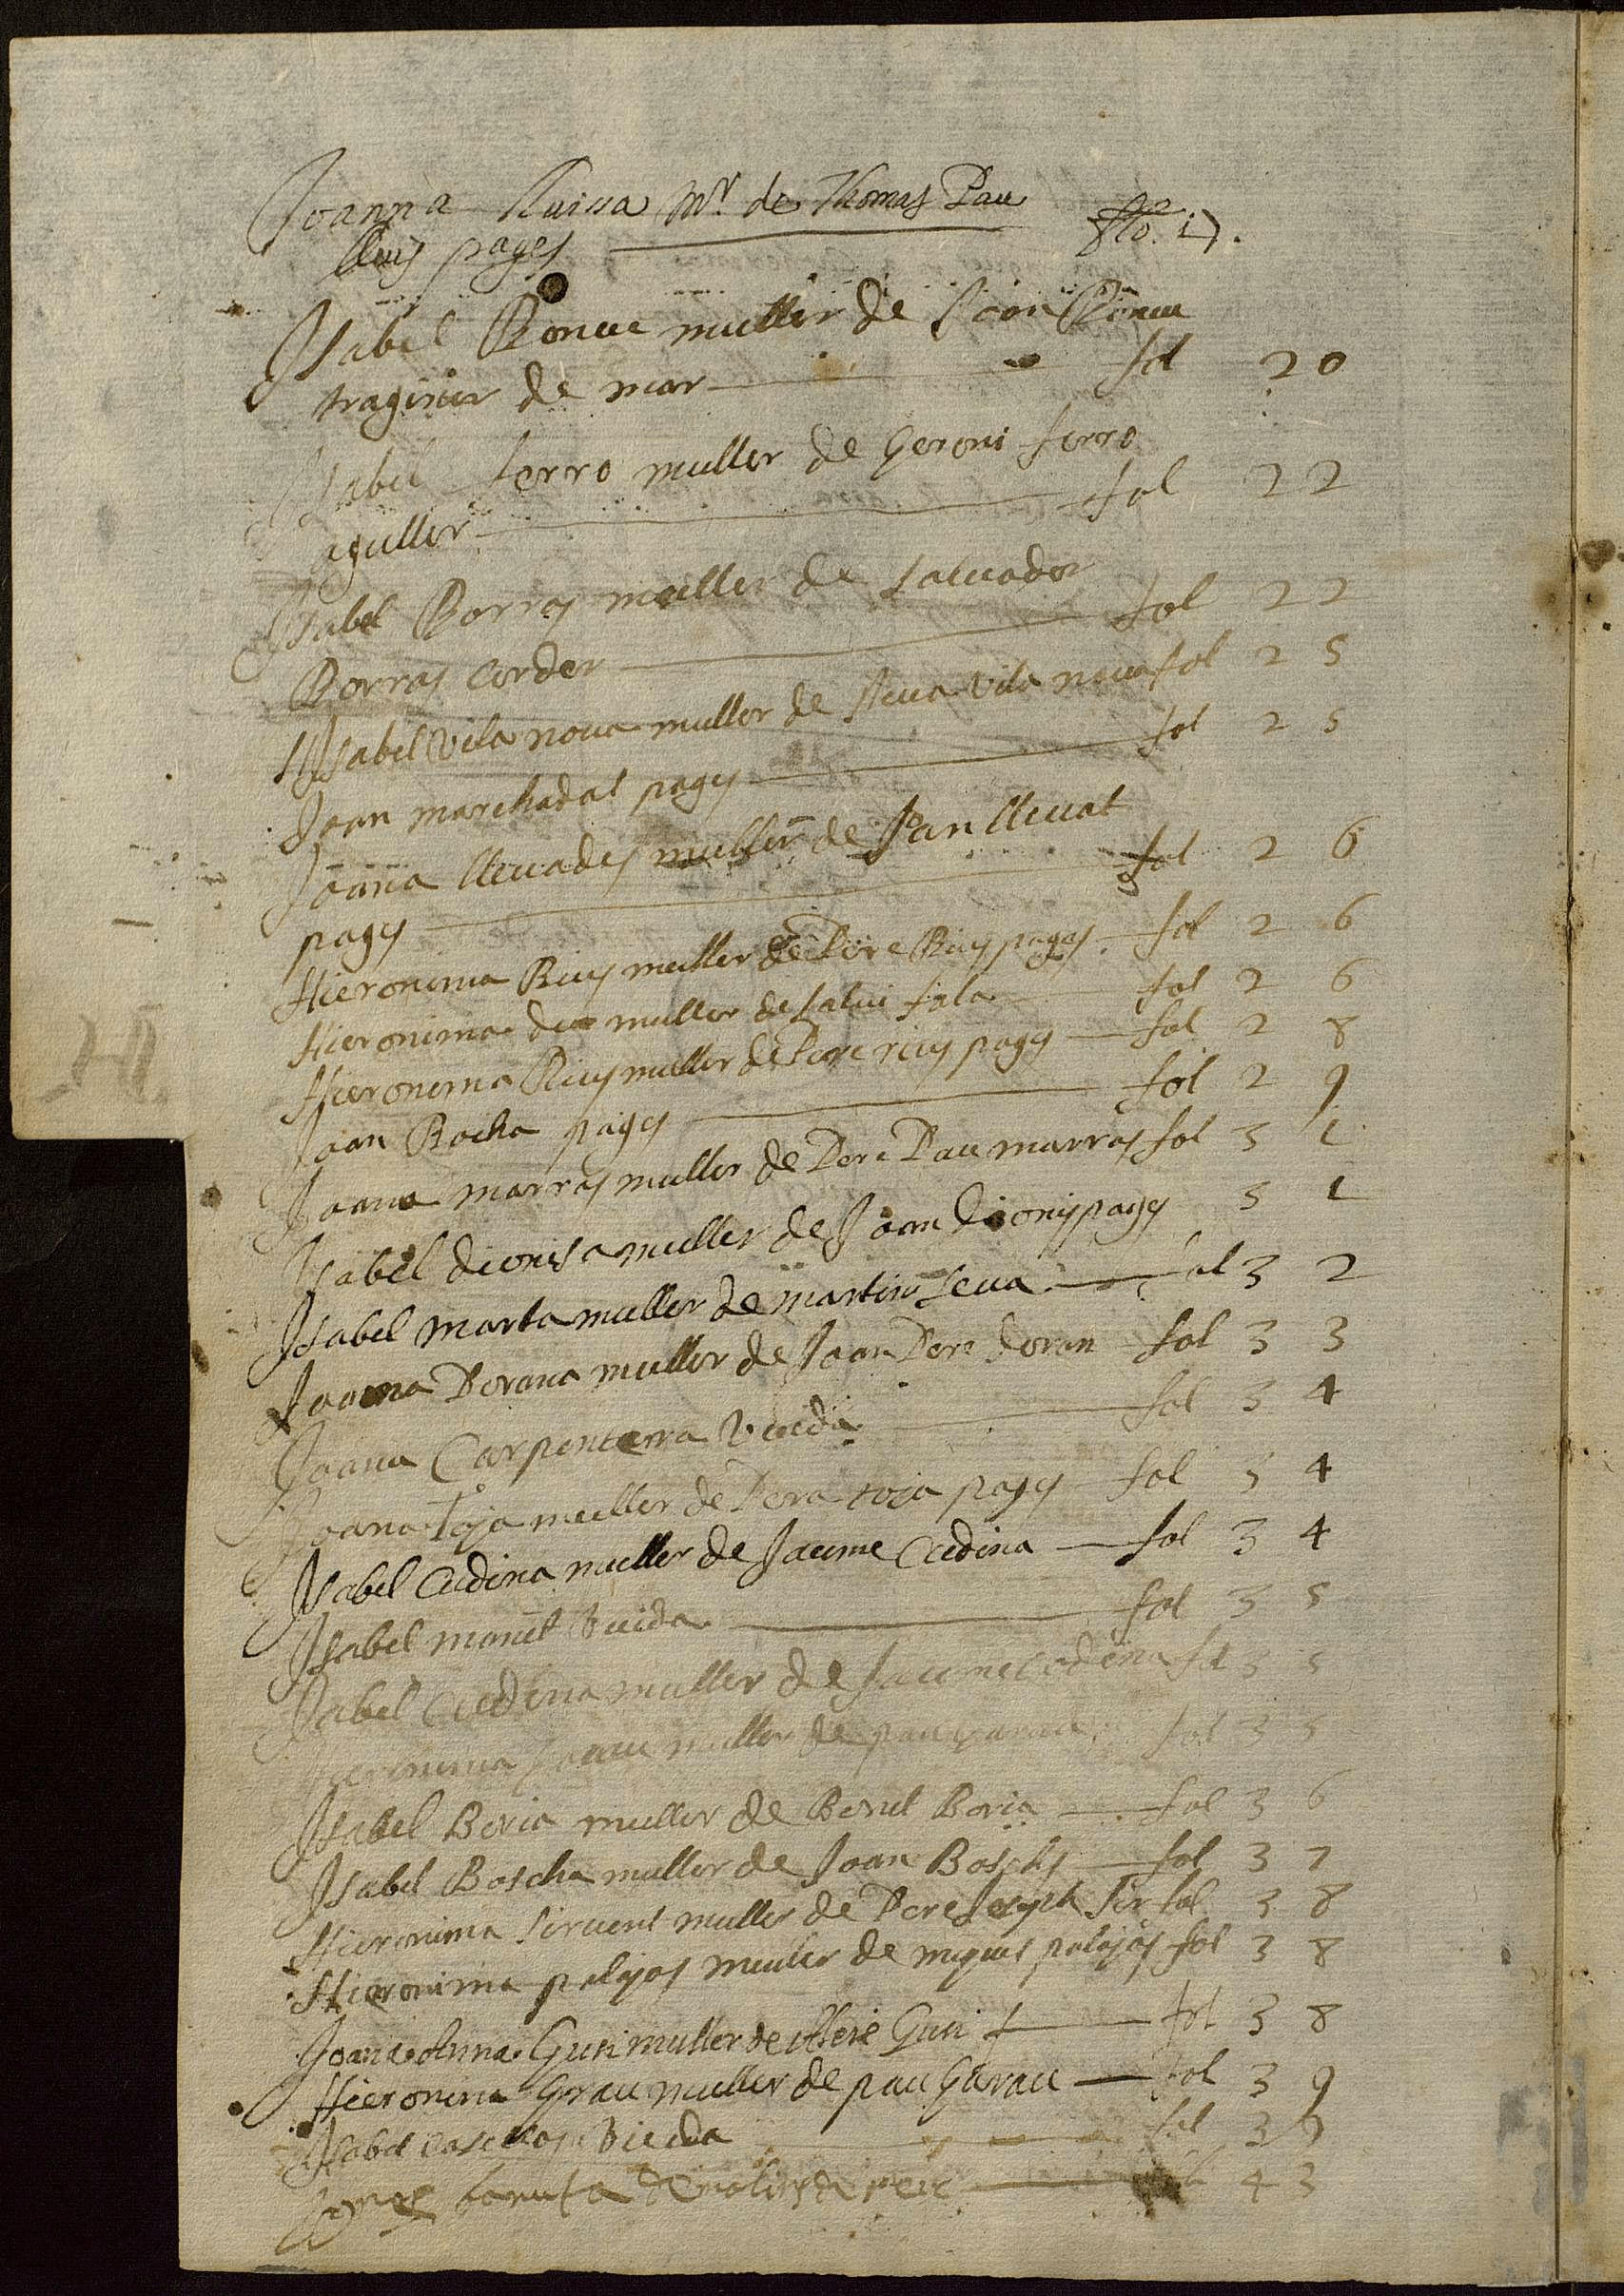 Joanna Ruissa Mr. de Thomas Pau
lluis pages fto. 17.
Isabel Roncu muller de Joan Roncu
traginer de mar fol 20
Isabel ferro muller de Geroni ferro
aguller fol 22
Isabel Borras muller de saluador
Borras corder fol 22
Isabel Vila noua muller de Vila noua fol 25
Joan marchadal pages fol 25
Joana lleuades muller de Joan lleuat
pages fol 26
Hieronima Rius muller de Pere Rius pages fol 26
Hieronima muller de salui sala fol 26
Hieronima Rius muller de Pere rius pages fol 28
Joan Rocha pages fol 29
Joana marras muller de Pere Pau marras fol 31
Isabel dionisa muller de Joan dionis pages 31
Isabel marta muller de martin seua fol 32
Joana Dorana muller de Joan Pere doran fol 33
Joana Carpentera Viuda fol 34
Joana Toja muller de Pera toja pages fol 34
Isabel Cudina muller de Jaume Cudina fol 34
Isabel monet Viuda fol 35
Isabel Cudina muller de Jaume Codina fol 35
Hieronima Grau muller de pau garau fol 35
Isabel Boria muller de Benet Boria fol 36
Isabel Boscha muller de Joan Boschs fol 37
Hieronima seruent muller de Pere Joseph ser fol 38
Hieronima palajos muller de miquel palajos fol 38
Joana Anna Guri muller de Guri fol 38
Hieronima Grau muller de pau Garau fol 39
Isabel Viuda fol 39
de molins de reic 43